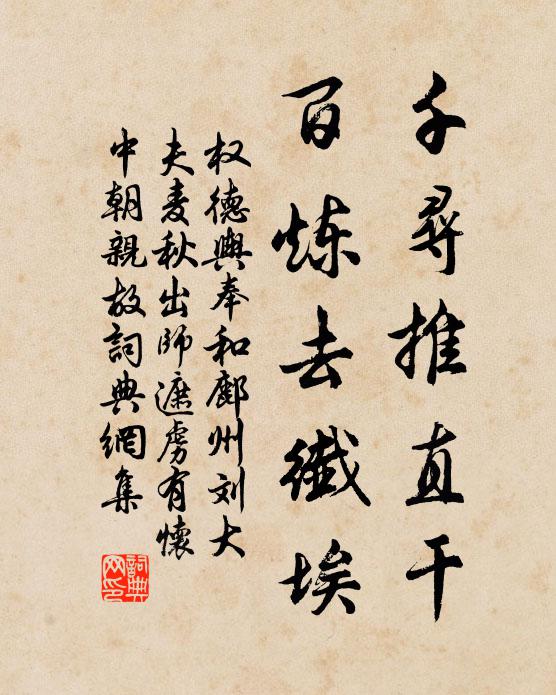 千尋推直干
百炼去纖埃
权德輿奉和鄜州刘大
夫麦秋出師遮虏有懷
中朝親故詞典網集
詞典网印